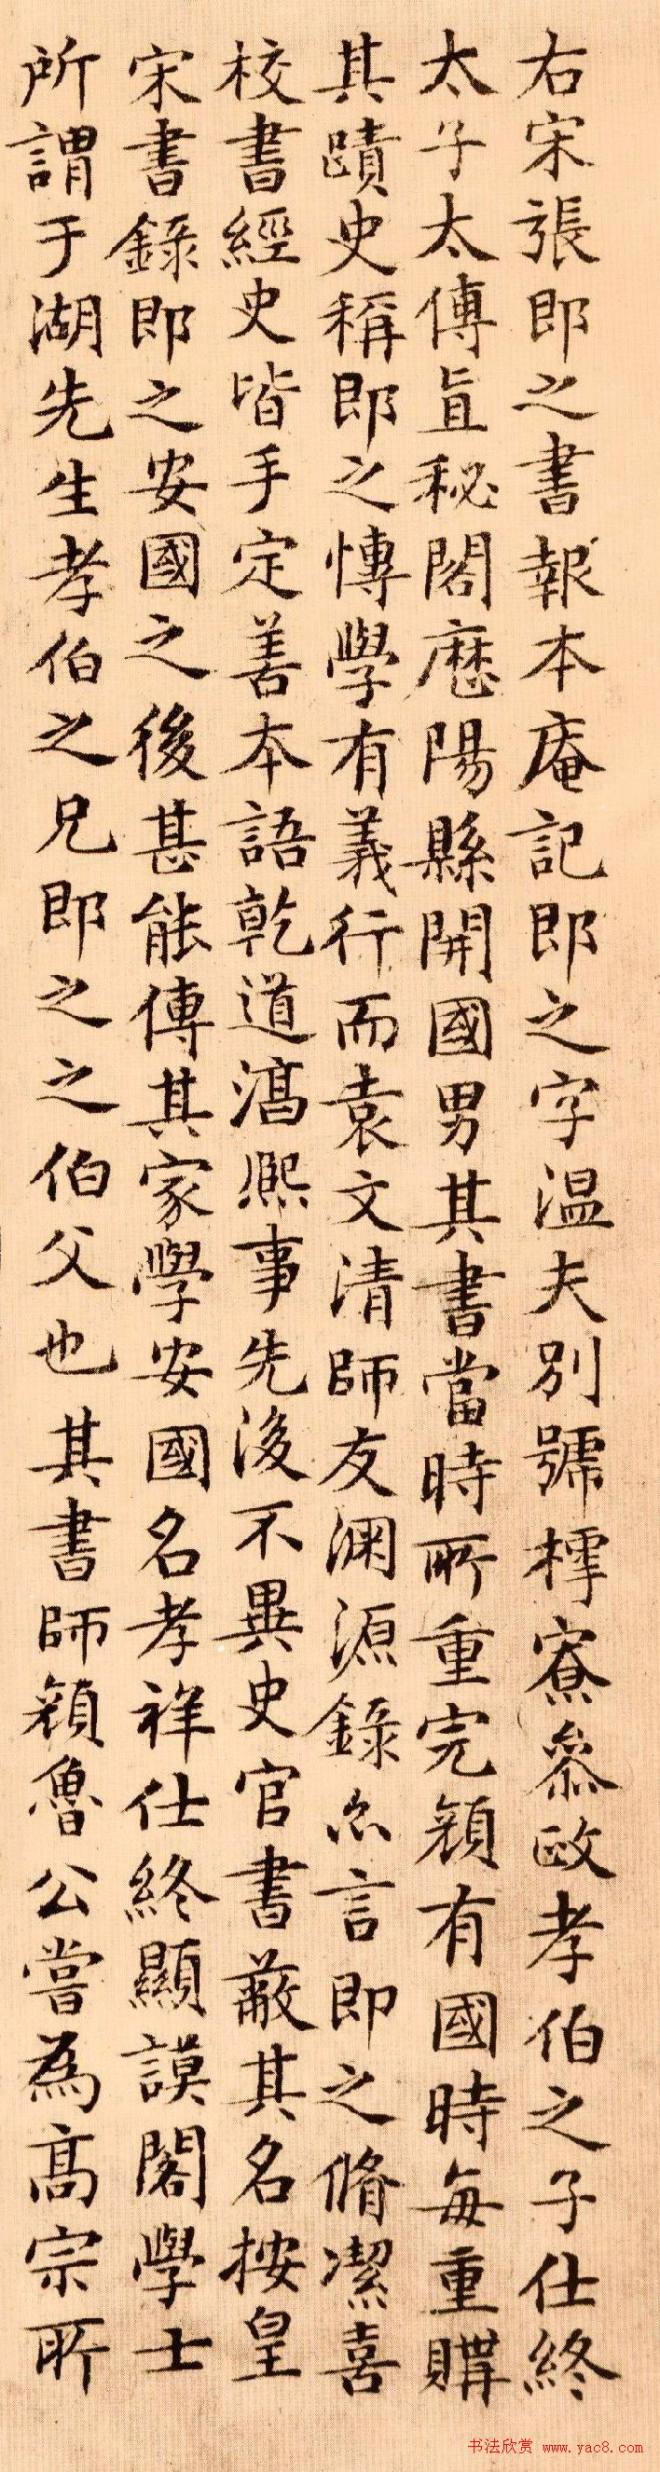 右宋張即之書報本庵記即之字温夫別號樗寮參政孝伯之子仕終
太子太傅直秘閣歷陽縣開國男其書當時所重完顏有國時每重購
其蹟史稱即之博學有義行而袁文清師友淵源錄亦言即之脩潔喜
校書經史皆手定善本語乾道淳熙事先後不異史官書蔽其名按皇
宋書錄即之安國之後甚能傳其家學安國名孝祥仕終顯謨閣學士
所謂于湖先生孝伯之兄即之之伯父也其書師顏魯公嘗為高宗所
书法欣赏 www.yac8.com